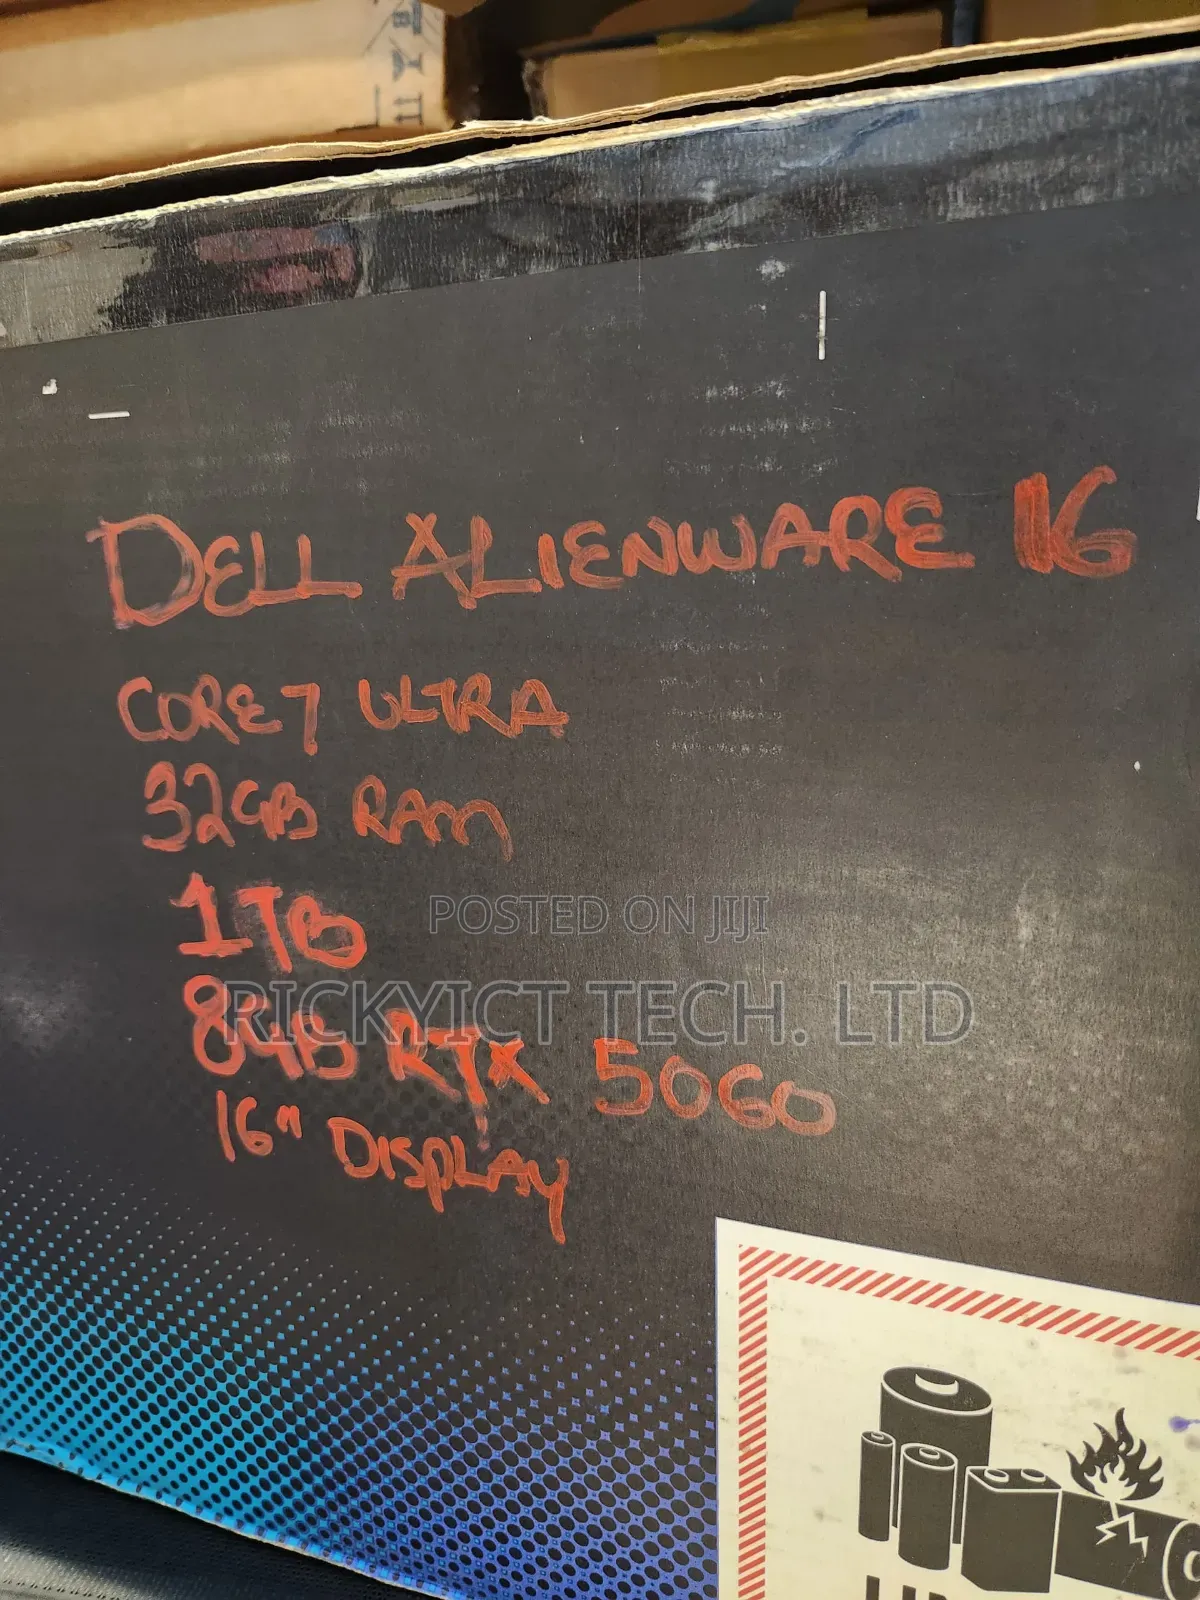 DELL ALIENWARE 16
CORE 7 ULTRA
32GB RAM
1TB
POSTED ON JIJI
RICKYICT TECH. LTD
8GB RTX 5060
16" DISPLAY